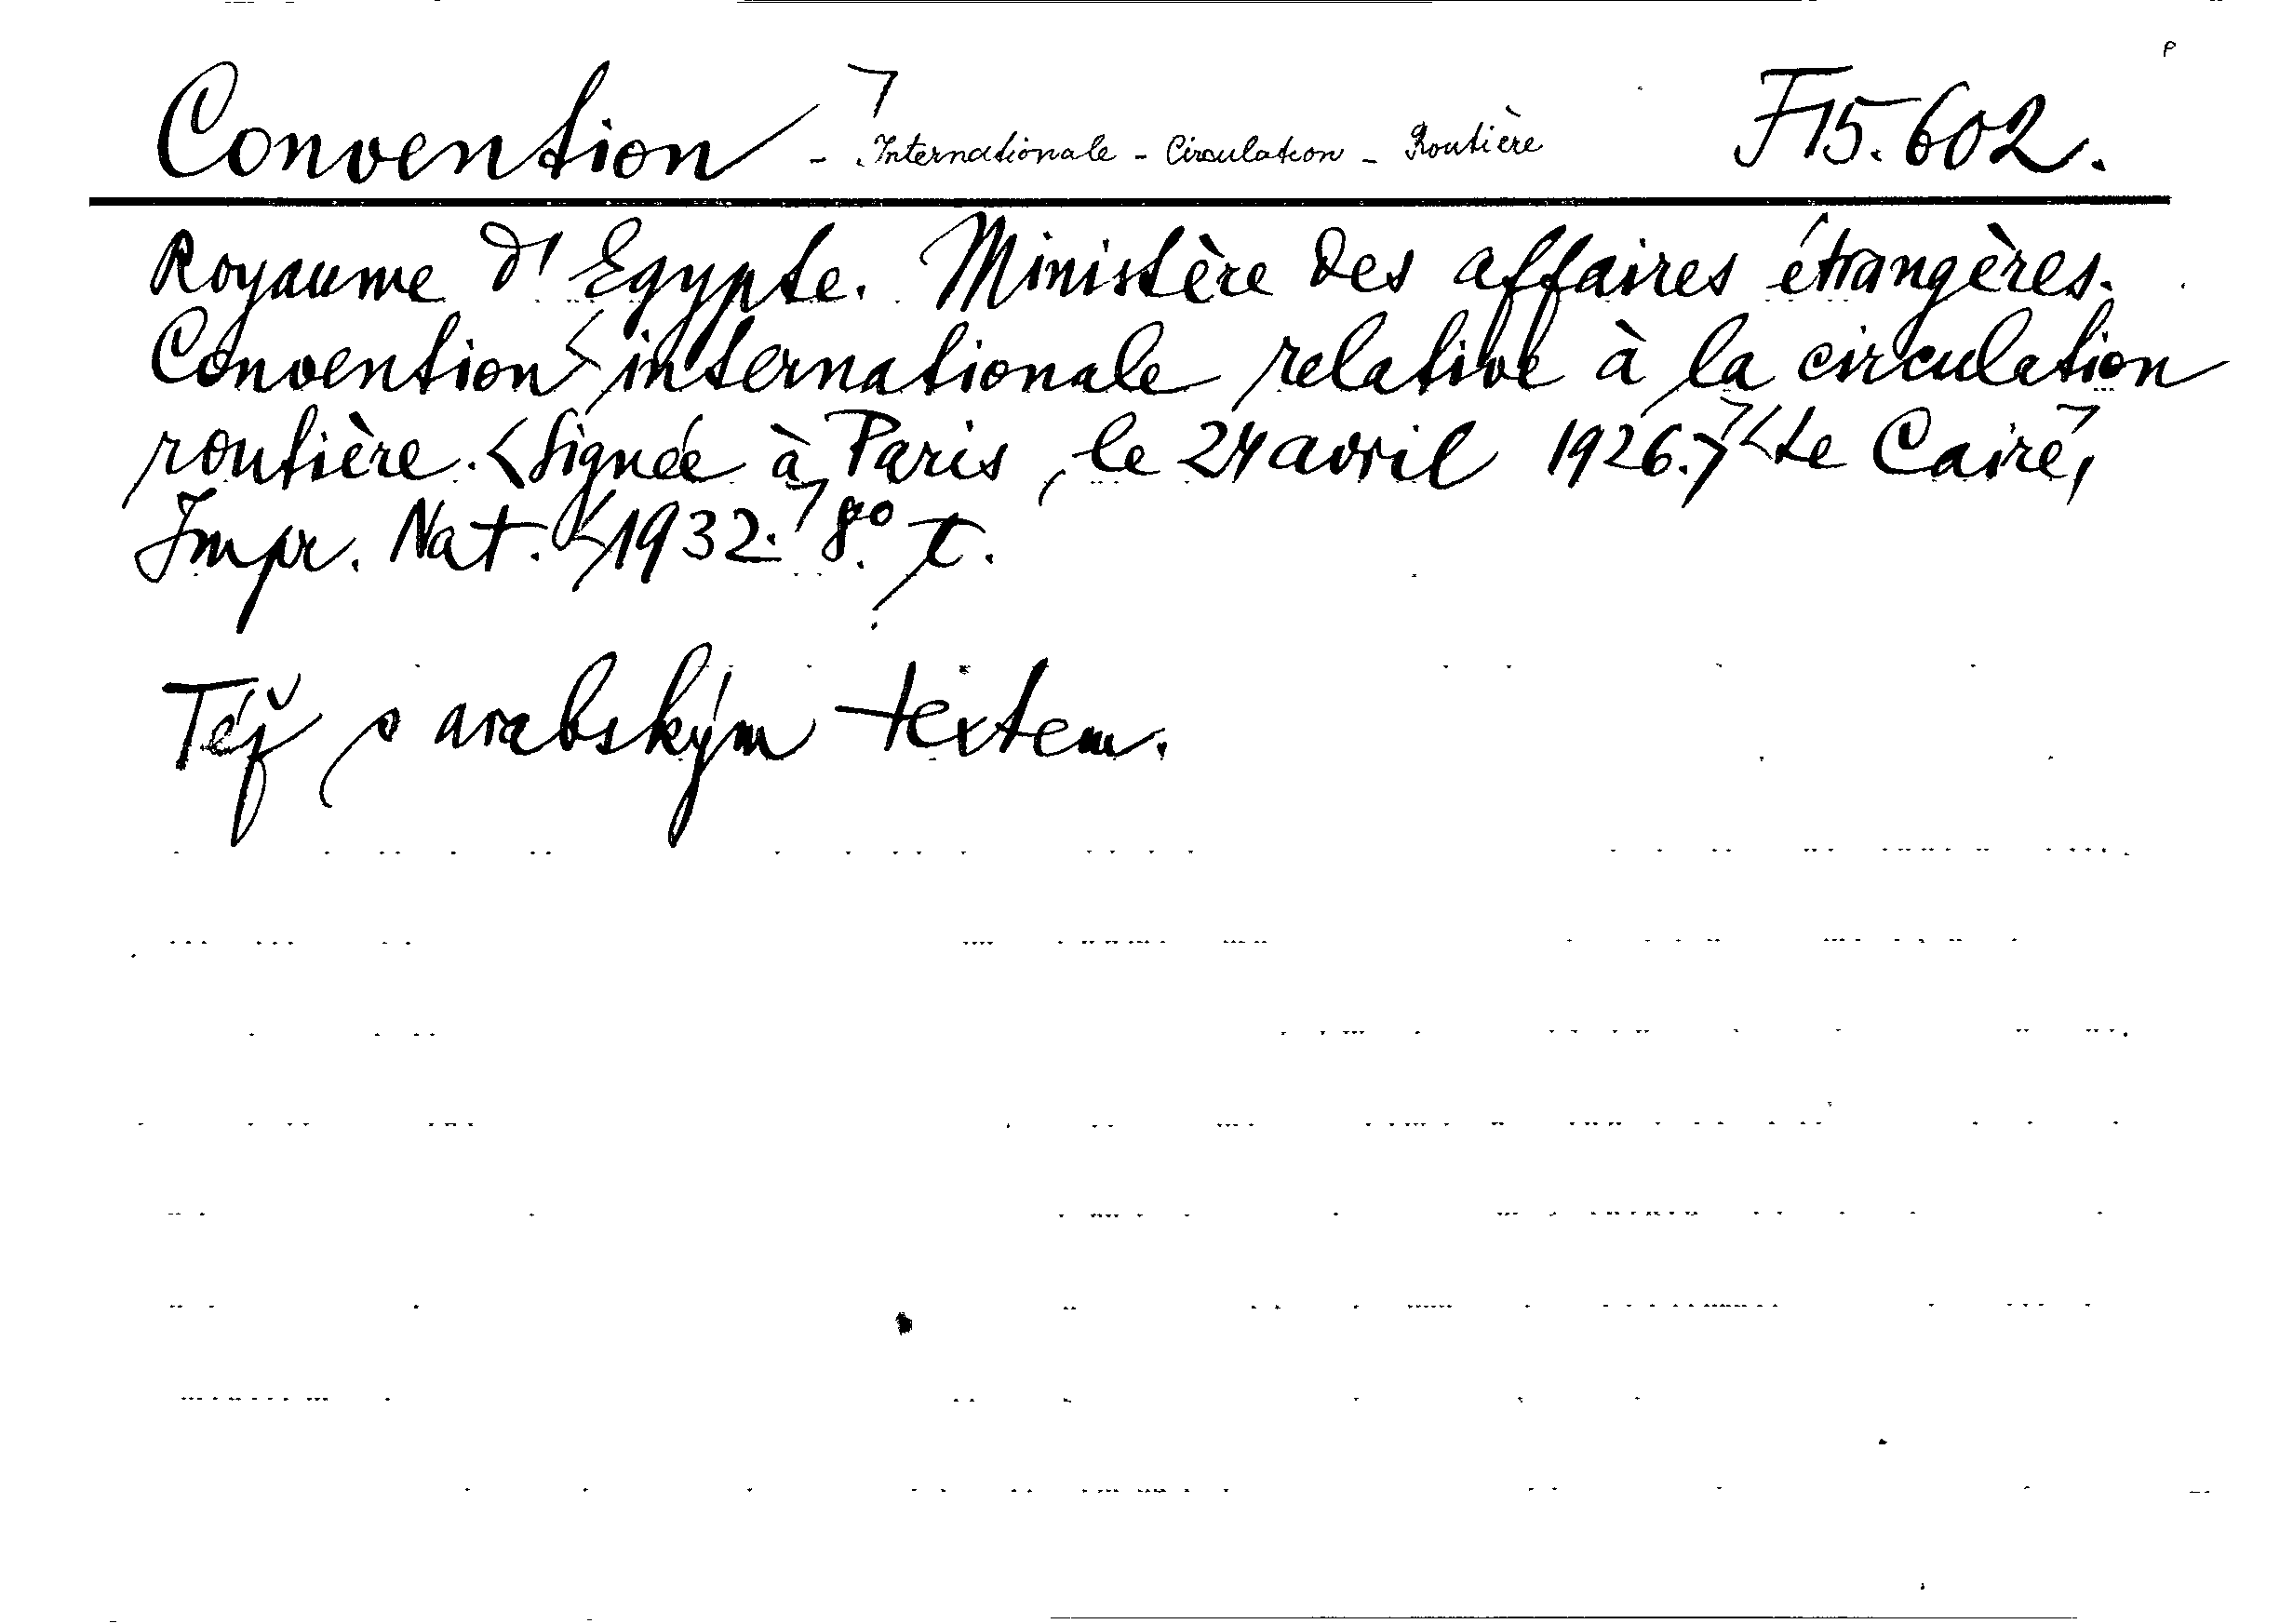 P
Convention - Internationale - Circulation - Routière F 15.602.
Royaume d'Egypte. Ministère des affaires étrangères.
Convention internationale relative à la circulation
routière. Signée à Paris, le 24 avril 1926. Le Caire,
Impr. Nat. 1932. 8° T.
Též s arabským textem.